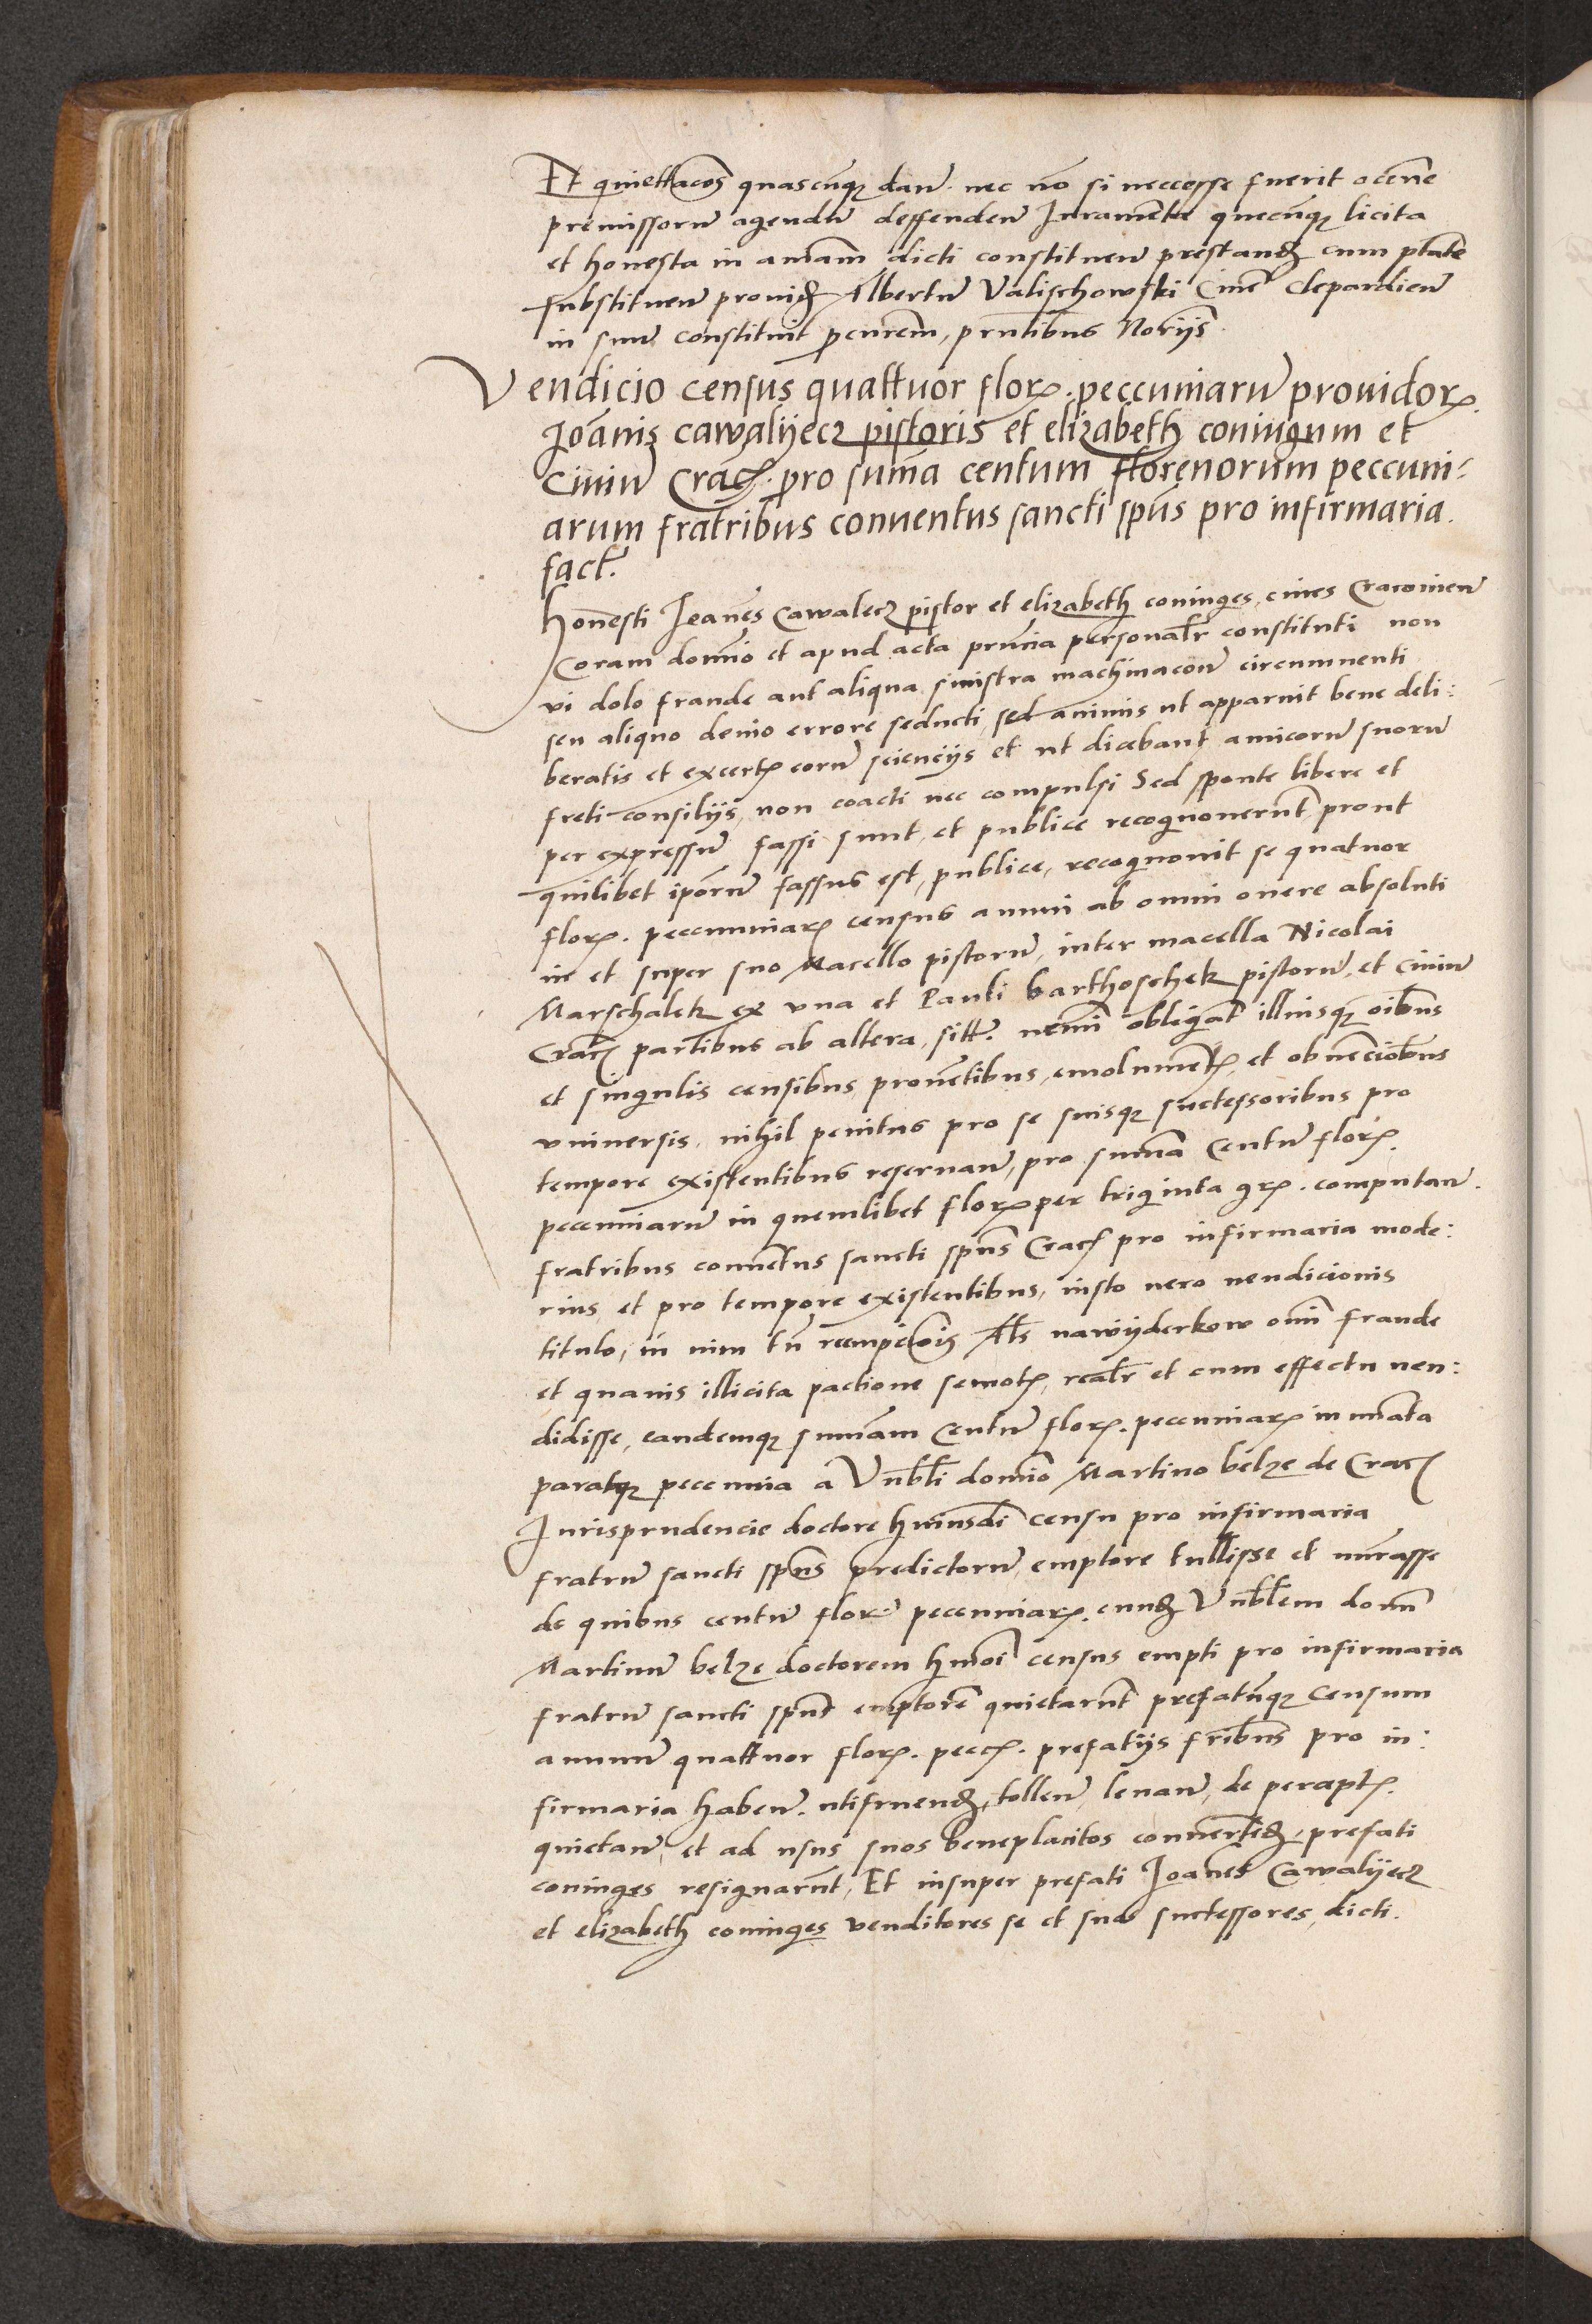 Et quiettacōs quascūqꝫ dañ. nec nō si neccesse fuerit occēne
premissorū agendū deffendeñ Iuramēta quecūqꝫ licita
et honesta in aīam dicti constitueñ prestand̄ cum ptāte
substitueñ prouid̄ Albertū Valischowski Ciuē Clepardieñ
in suū constituit ꝓcurēm, pn̄tibus Norijs.
Vendicio census quattuor florꝝ. peccuniarū prouidorꝝ.
Ioānis cawalyecz pistoris et elizabeth coniugum et
Ciuiū Crac̄. pro suma centum florenorum peccuni-
arum fratribus conuentus sancti spūs pro infirmaria.
fact̄.
Honesti Ioānes Cawalecz pistor et elizabeth coniuges, ciues Cracouieñ
Coram domīo et apud acta pn̄cia personal̄r constituti non
vi dolo fraude aut aliqua sinistra machinacoñ circumuenti
seu aliquo deuio errore seducti, sed animis ut apparuit bene deli:
beratis et excertꝭ eorū scienciis et ut dicebant, amicorū suorū
freti consilijs, non coacti nec compulsi Sed sponte libere et
per expressū fassi sunt, et publice recognouerūt, prout
quilibet ipōrū fassus est, publice, recognouit se quatuor
florꝝ. peccuniarꝝ census annui ab omni onere absoluti
in et super suo Macello pistorū, inter macella Nicolai
Marschalek ex vna et Pauli barthoschek pistorū, et Ciuiū
Crac̄ partibus ab altera, sitt̄. nemī obligat̄ illiusqꝫ oībus
et singulis censibus, prouētibus, emolumētꝭ, et obuēciōbus
vniuersis, nihil penitus pro se suisqꝫ successoribus pro
tempore existentibus reseruañ, pro suma Centū florꝝ.
peccuniarū in quemlibet florꝝ per triginta grꝝ. computañ.
fratribus conuētus sancti spūs Crac̄ pro infirmaria mode:
rnis et pro tempore existentibus, iusto vero vendicionis
titulo, in vim tn̄ reempcōis Als̄ nawyderkow omī fraude
et quauis illicita pactione semotꝭ, real̄r et cum effectu ven:
didisse, eandemqꝫ sumam Centū florꝝ. peccuniarꝝ in nūata
paratqꝫ peccunia a Vn̄bli domīo Martino belze de Crac̄
Iurisprudencie doctore huiusdī census pro infirmaria
fratrū sancti spūs predictorū, emptore tullisse et nūrasse
de quibus centū florꝝ peccuniarꝝ. eund̄ Vn̄blem domī
Martinū belze doctorem hmōi census empti pro infirmaria
fratrū sancti spūs emptorē quietarūt prefatūqꝫ Censum
annuū quattuor florꝝ. peccꝝ. prefatijs frībus pro in:
firmaria habeñ. utifruend̄, tolleñ, leuañ, de perceptꝭ.
quietañ, et ad usus suos beneplacitos conuertēd̄, prefati
coniuges resignarūt, Et insuper prefati Ioānes Cawalyecz
et elizabeth coniuges venditores se et suos successores, dicti.